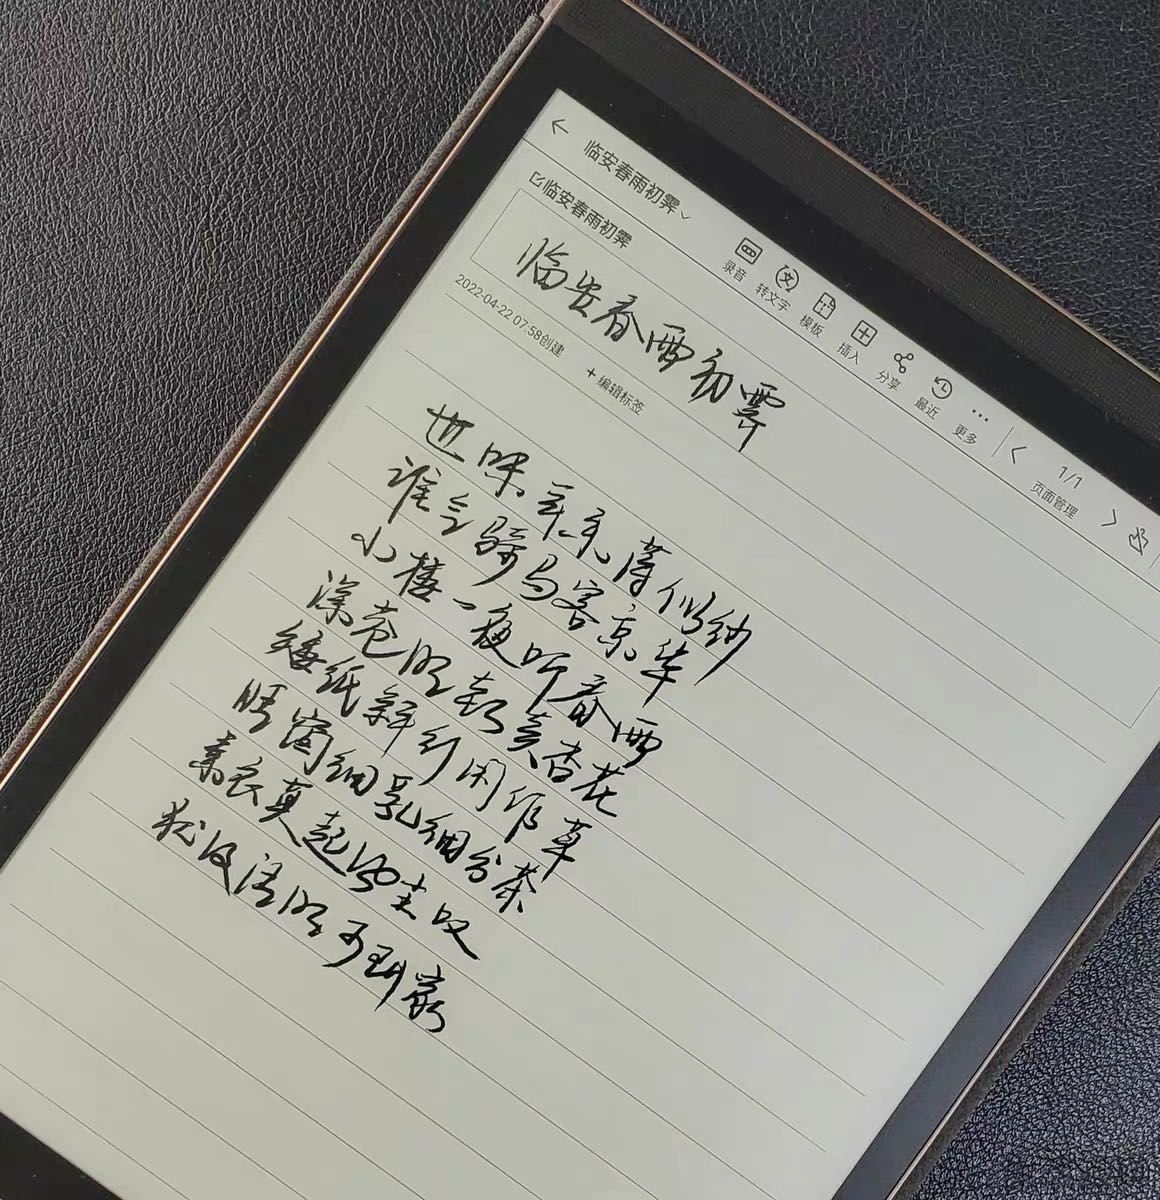 临安春雨初霁
临安春雨初霁
录音 转文字 模板 插入 分享 最近 更多
1/1
页面管理
临安春雨初霁
2022-04-22 07:58创建
+ 编辑标签
世味年来薄似纱
谁令骑马客京华
小楼一夜听春雨
深巷明朝卖杏花
矮纸斜行闲作草
晴窗细乳细分茶
素衣莫起风尘叹
犹及清明可到家